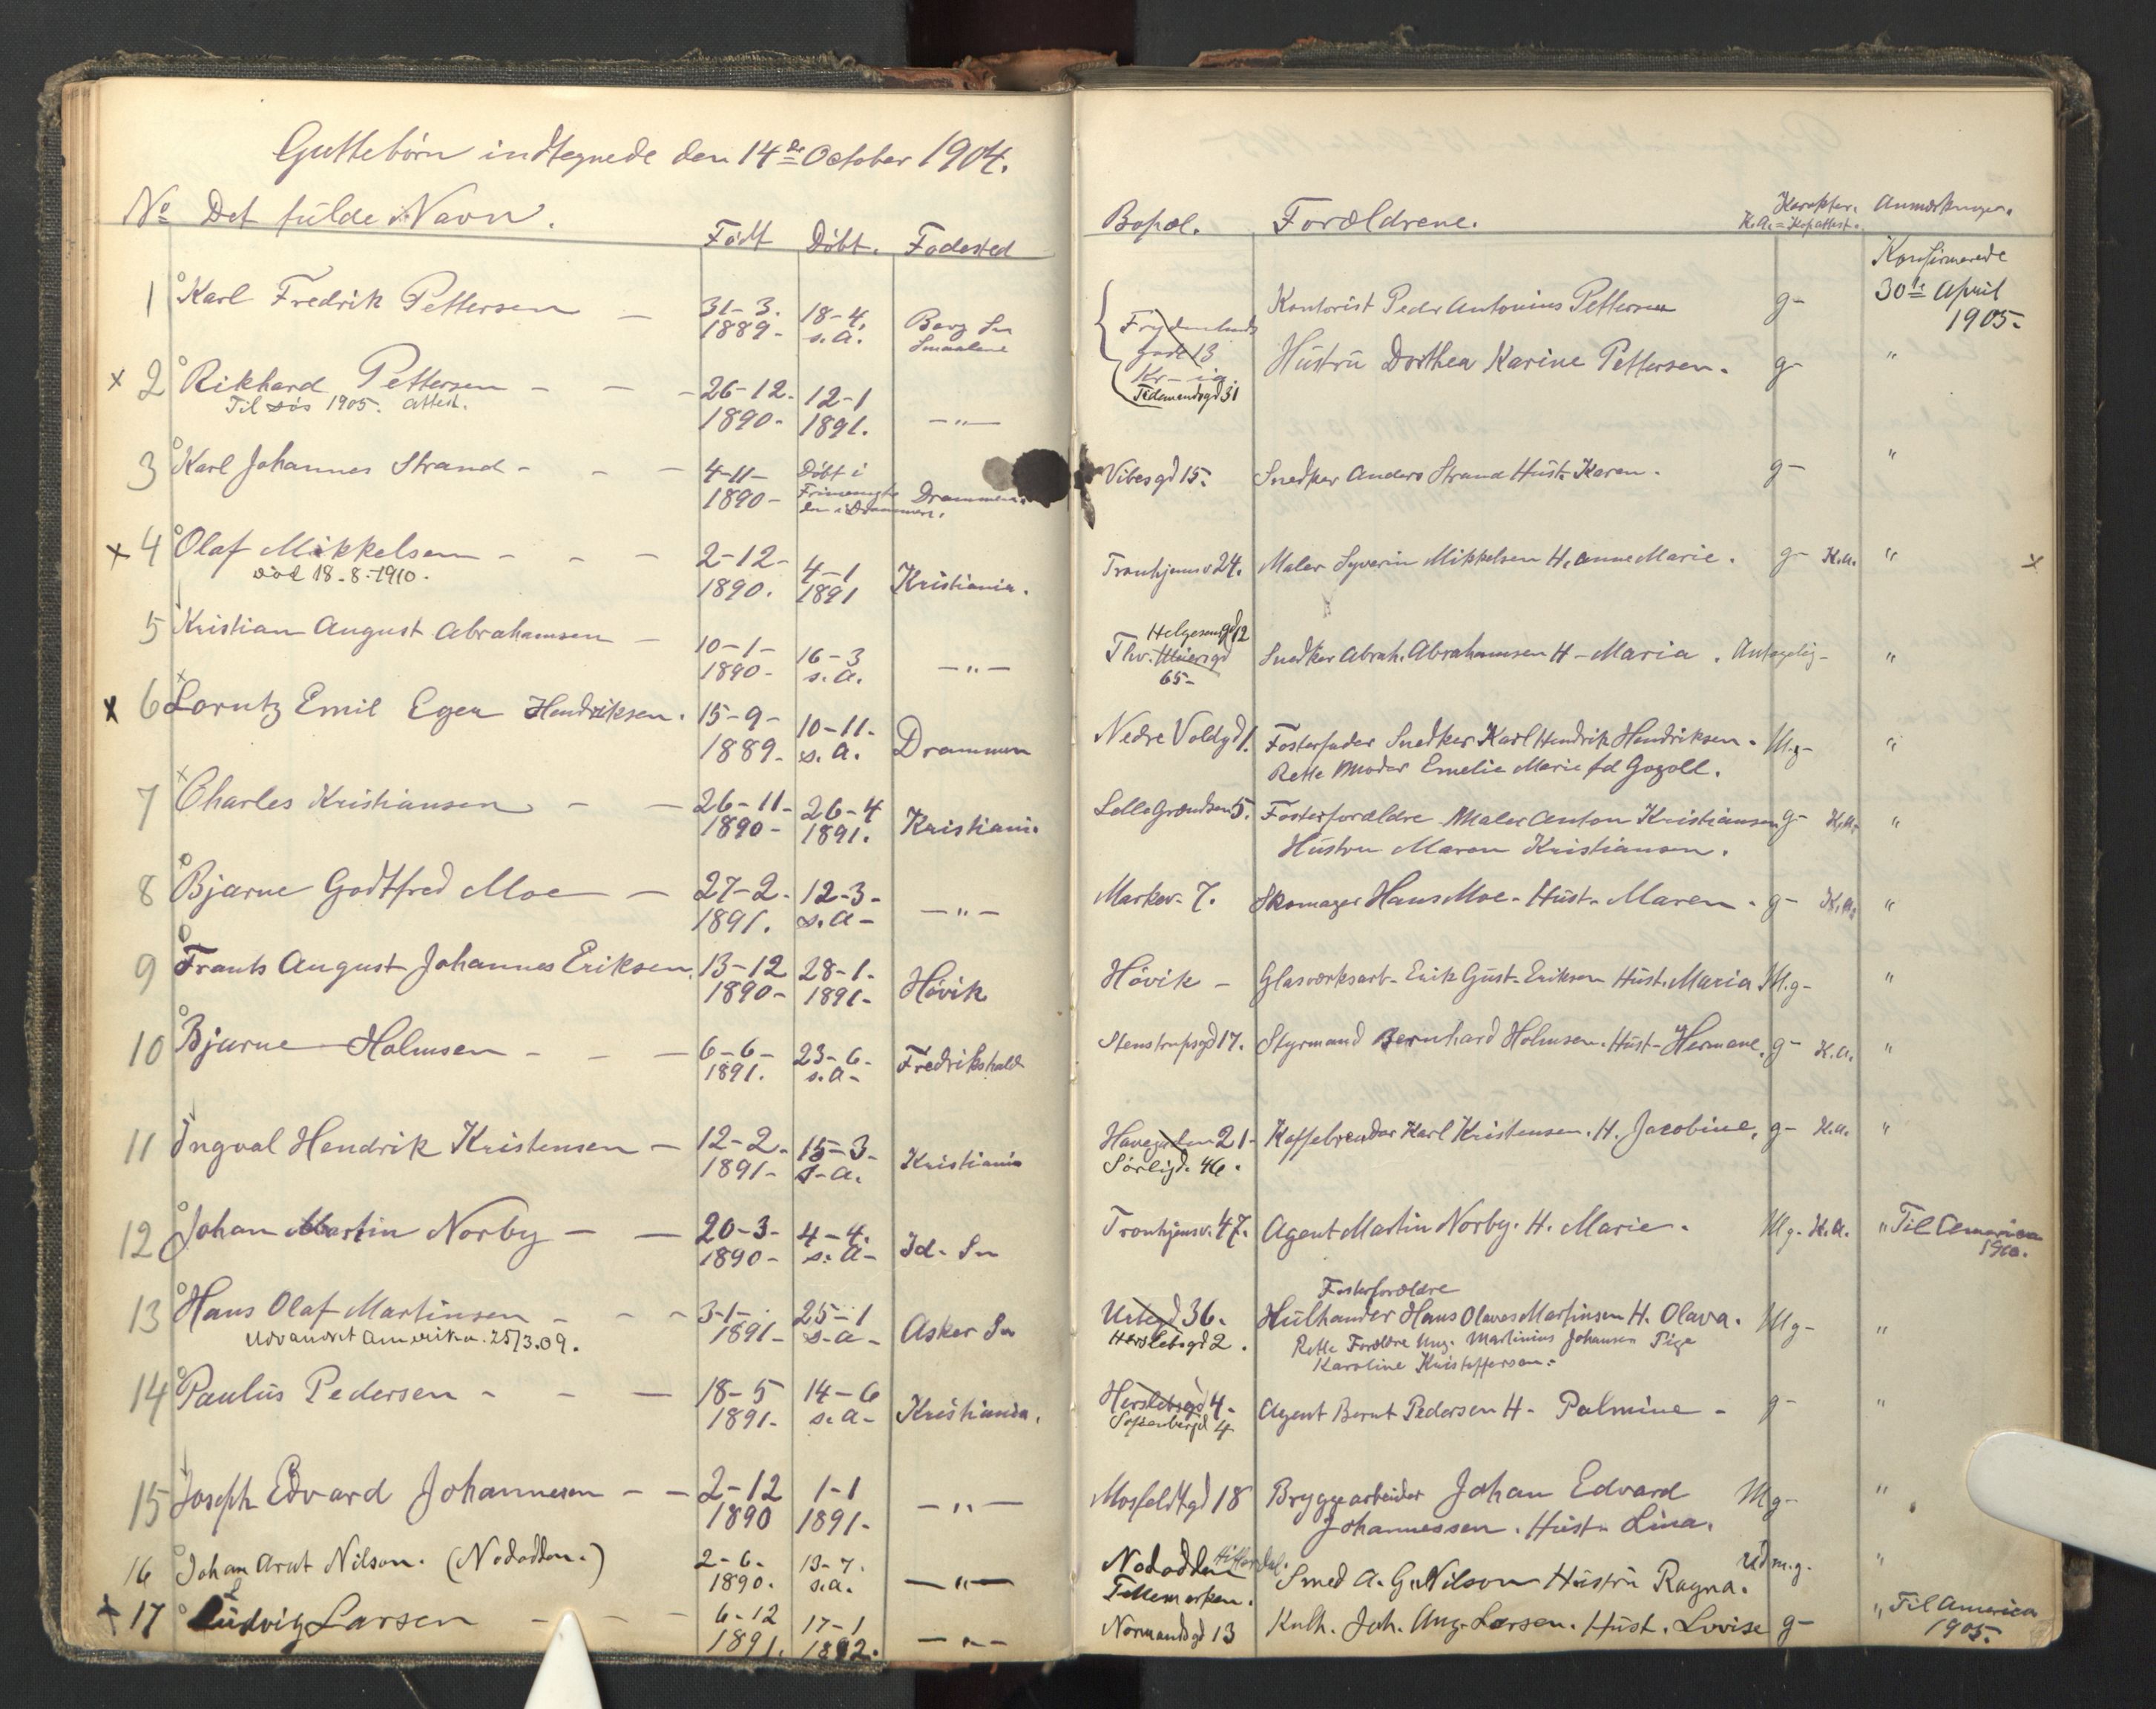 Guttebørn indtegnede den 14de October 1904.
No Det fulde Navn. Født Døbt. Fødested
Bopæl. Forældrene. Karakter. Anmærkninger.
K.A. = Kopattest.
Konfirmerede
30te April
1905-
1 Karl Fredrik Pettersen - 31-3. 1889- 18-4. s.a. Berg Sn Smaalene
Frydenlunds gade 13 Kr-ia Tidemandsgd 31 Kontorist Peder Antonius Pettersen g-
x 2 Rikhard Pettersen - - - 26-12. 1890- 12-1 1891. -"-
Til søs 1905. Attest.
Hustru Dorthea Karine Pettersen. g- "
3 Karl Johannes Strand - - - 4-11- 1890- Døbt i Frimenighe den i Drammen. Drammen.
Vibesgd 15. Snedker Anders Strand Hust. Karen. g- "
x 4 Olaf Mikkelsen - - - 2-12- 1890. 4-1 1891 Kristiania.
død 18-8-1910.
Tronhjemsv 24. Maler Syverin Mikkelsen H. Anne Marie. g- K.A. " x
5 Kristian August Abrahamsen - 10-1- 1890- 16-3 s.a. -"-
Helgesensgd 12
Thv. Meiersgd 65- Snedker Abrah. Abrahamsen H- Maria. Antagelig- "
x 6 Lorntz Emil Eger Hendriksen. 15-9- 1889- 10-11- s.a. Drammen
Nedre Voldgd 1. Fosterfader Snedker Karl Hendrik Hendriksen. M.g- "
Rette Moder Emelie Marie fd Gogoll.
7 Charles Kristiansen - - 26-11- 1890- 26-4 1891. Kristiania
Lille Grændsen 5. Fosterforældre Maler Anton Kristiansen g- K.A. "
Hustru Maren Kristiansen.
8 Bjarne Godtfred Moe - - 27-2. 1891. 12-3- s.a- -"-
Markv. 7. Skomager Hans Moe. Hust. Maren. g- K.A. "
9 Frants August Johannes Eriksen. 13-12 1890- 28-1- 1891- Høvik
Høvik - Glasværksarb. Erik Gust. Eriksen Hust. Maria M.g- "
10 Bjarne Holmsen - - - 6-6- 1891. 23-6- s.a- Fredrikshald
Stenstrupsgd 17. Styrmand Bernhard Holmsen. Hust- Hermene. g- K.A. "
11 Ingval Hendrik Kristensen - 12-2. 1891- 15-3- s-a. Kristiania
Havegaden 21- Kaffebrender Karl Kristensen. H. Jacobine. g- K.A. "
Sørligd. 46.
12 Johan Martin Norby - - 20-3- 1890- 4-4. s.a- Id. Sn
Tronhjemsv. 47. Agent Martin Norby. H. Marie. Mg. K.A. " Til Amerika
1910.
13 Hans Olaf Martinsen - - - 3-1- 1891- 25-1 s-a- Asker Sn
Udvandret Amerika. 25/3.09.
Fosterforældre
Urtegd 36. Hulhander Hans Olaves Martinsen H. Olava. Mg- "
Herslebsgd 2. Rette Forældre Ung. Martinius Johansen Pige
Karoline Kristoffersen.
14 Paulus Pedersen - - - 18-5 1891- 14-6 s.a- Kristiania.
Herslebsgd 4. Agent Bernt Pedersen H- Palmine - g- "
Sofienberggd 4
15 Joseph Edvard Johannesen - - 2-12 1890 1-1 1891- -"-
Mosfeldtgd 18 Bryggearbeider Johan Edvard Mg- "
Johannessen. Hust. Lina.
16 Johan Arnt Nilson. (Nododden.) 2-6- 1890. 13-7. s.a. -"-
Nododden Hitterdal. Tellemarken. Smed A. G. Nilson Hustru Ragna. Ud m.g. "
x 17 Ludvig Larsen - - - 6-12 1891. 17-1 1892. -"-
Normandsgd 13 Kulh. Joh. Aug. Larsen. Hust. Lovise g- " Til America
1905.